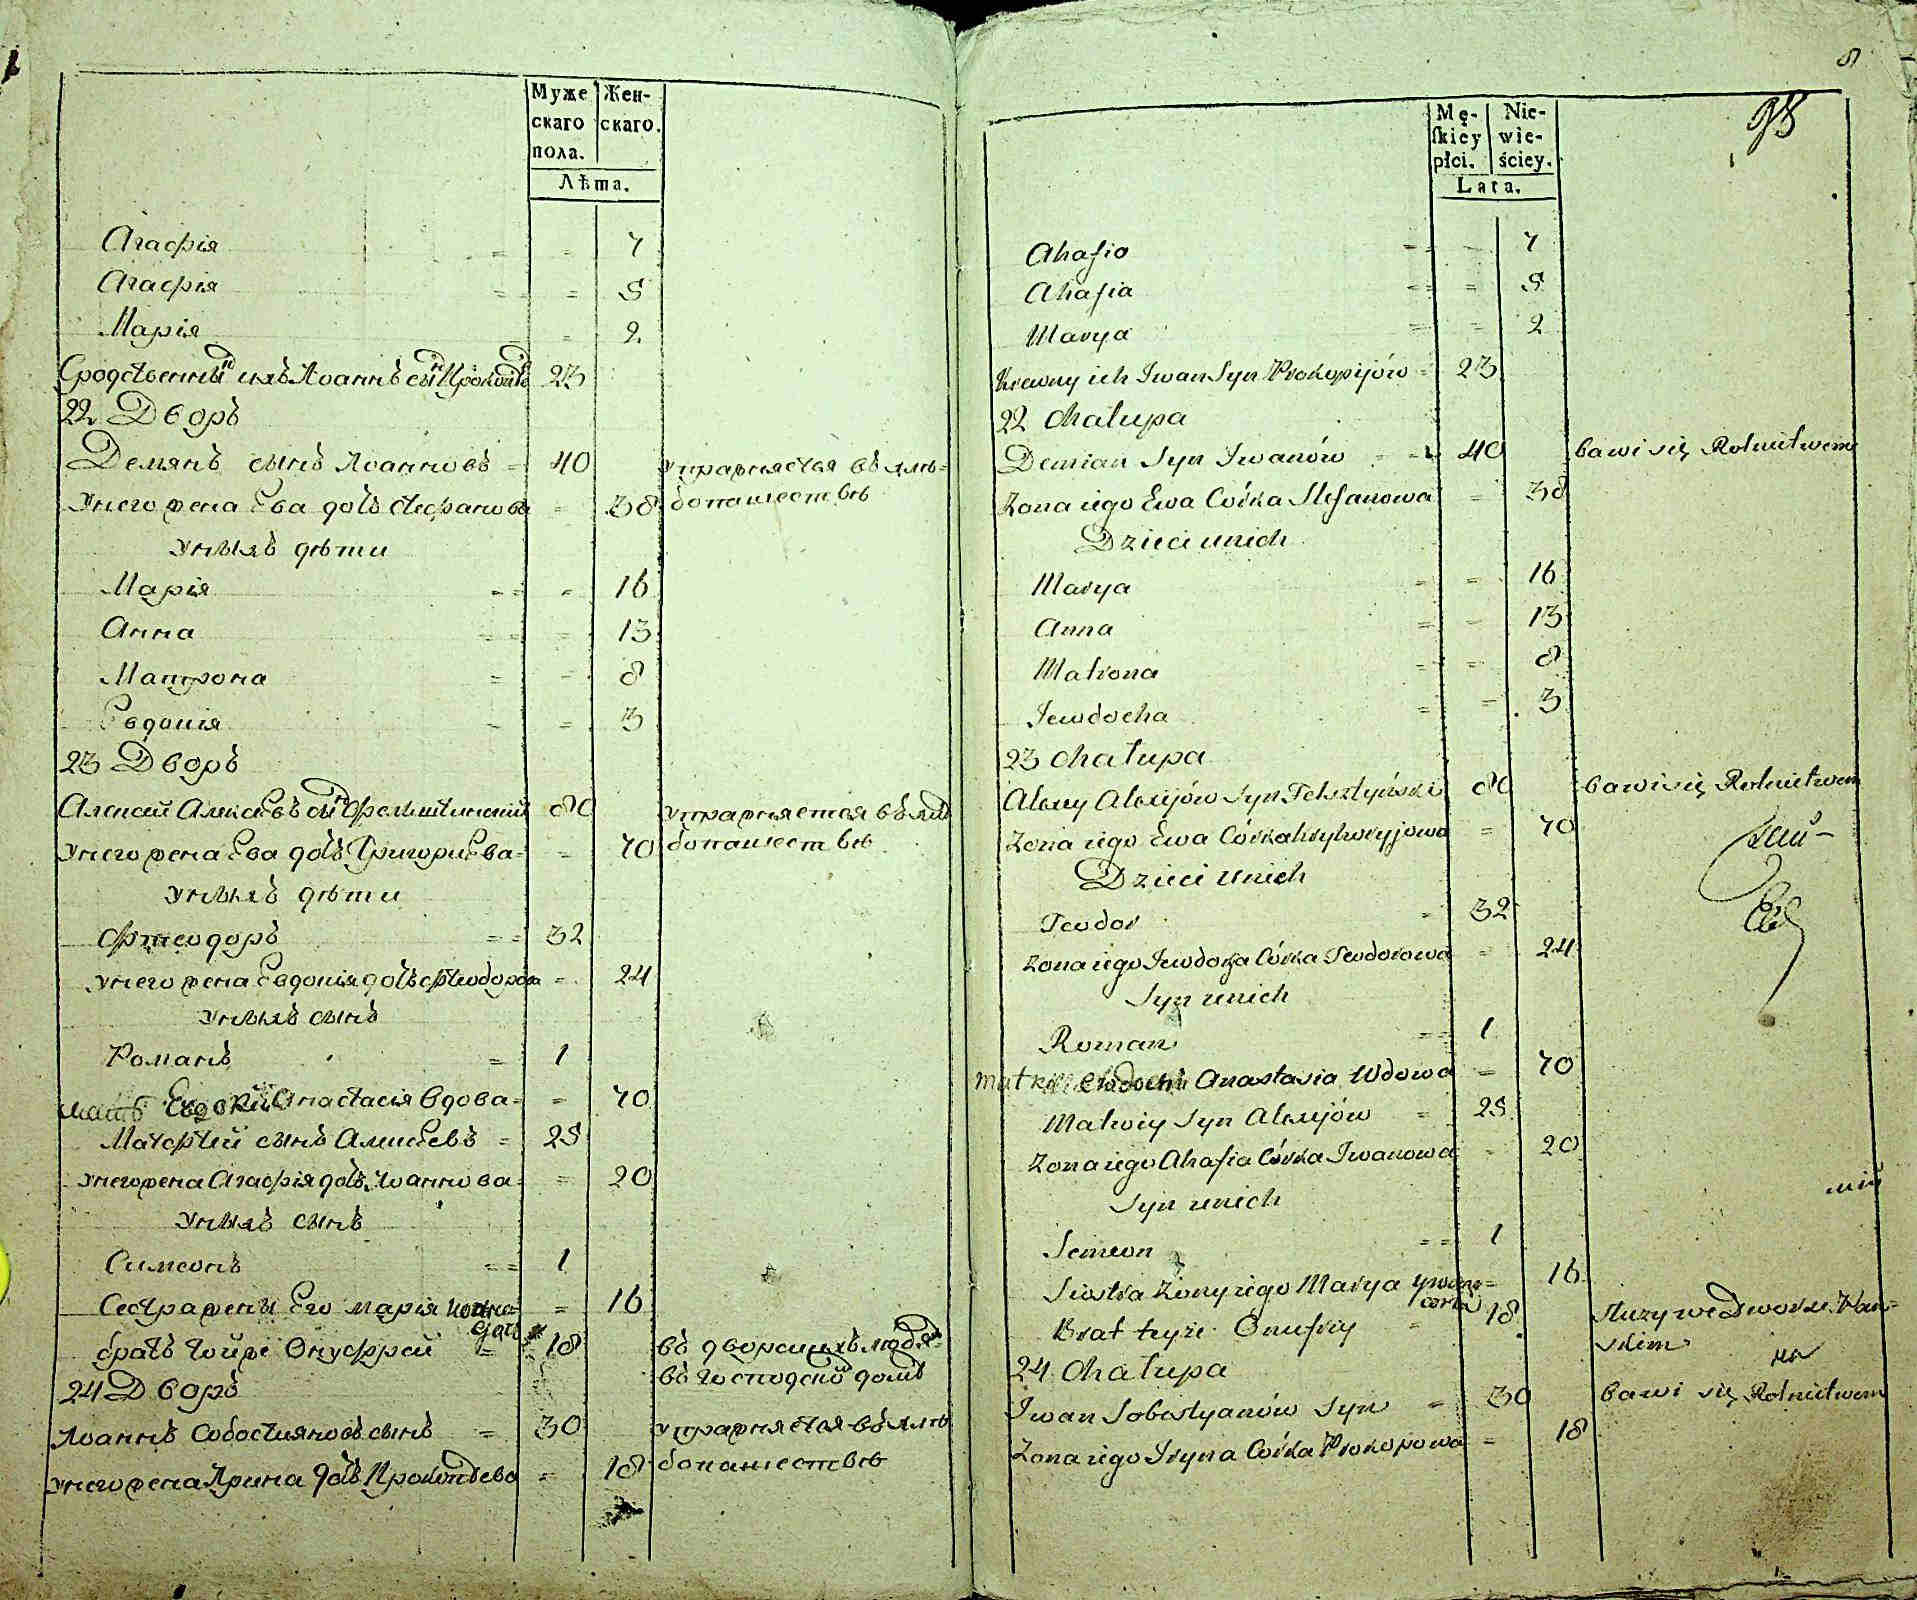 Муже Жен-
скаго скаго.
пола.
Лѣта.
Агафія = = 7
Агафія = = 5
Марія = 2
Сродственный ихъ Іоаннъ сынъ Прокопіевъ 23
22 Дворъ
Демянъ сынъ Іоанновъ = 40 упражняется въ хлѣ=
У него жена Ева дочь Стефанова = 38 бопашествѣ
У нихъ дѣти
Марія = = 16
Анна = = 13
Матрона = = 8
Евдокія = 3
23 Дворъ
Алексій Алексѣевъ сынъ Фельштинскій 80 упражняется въ хлѣ
У него жена Ева дочь Григоріева = = 70 бопашествѣ
У нихъ дѣти
Фтеодоръ = = 32
У него жена Евдокія дочь Фтеодорова = 24
У нихъ сынъ
Романъ = 1
мать Евдокіи Анастасія вдова = = 70
Матфтій сынъ Алексѣевъ = 25
У него жена Агафія дочь Іоаннова = = 20
У нихъ сынъ
Симеонъ = = 1
Сестра жены Его марія Іоанно= = 16
дочь
братъ тойже Онуфрей = 18 въ дворскихъ людях=
въ господскомъ домѣ
24 Дворъ
Іоаннъ Собостияновъ сынъ = 30 упражняется въ хлѣ
У него жена Ирина дочь Прокопьева = 18 бопашествѣ
8
98
Mę- Nie-
skiey wie-
płci. ściey.
Lata.
Ahafia = = 7
Ahafia = = 5
Marya = = 2
Krewny ich Iwan Syn Prokopijów = 23
22 Chałupa
Demian Syn Iwanów = 40 bawi się Rolnictwem
Zona iego Ewa Córka Stefanowa = 38
Dzieci u nich
Marya = = 16
Anna = = 13
Matrona = = 8
Jewdocha = = 3
23 Chałupa
Alexy Alexijów Syn Felsztyński 80 bawi się Rolnictwem
Zona iego Ewa Córka Hryhoryjowa = 70
Dzieci u nich
Teodor = 32
Zona iego Jewdoha Córka Teodorowa = 24
Syn u nich
Roman = = 1
matka Ewdochi Anastasia Wdowa = 70
Matwiy Syn Alexijów = 25
Zona iego Ahafia Córka Iwanowa = 20
Syn u nich
Semeon = = 1
Siostra Zony iego Marya Iwano= 16
córka
Brat teyże Onufry = 18 Służy we Dworze Pań=
skim
24 Chałupa
Iwan Sobestyanów Syn = 30 bawi się Rolnictwem
Zona iego Iryna Córka Prokopowa = 18